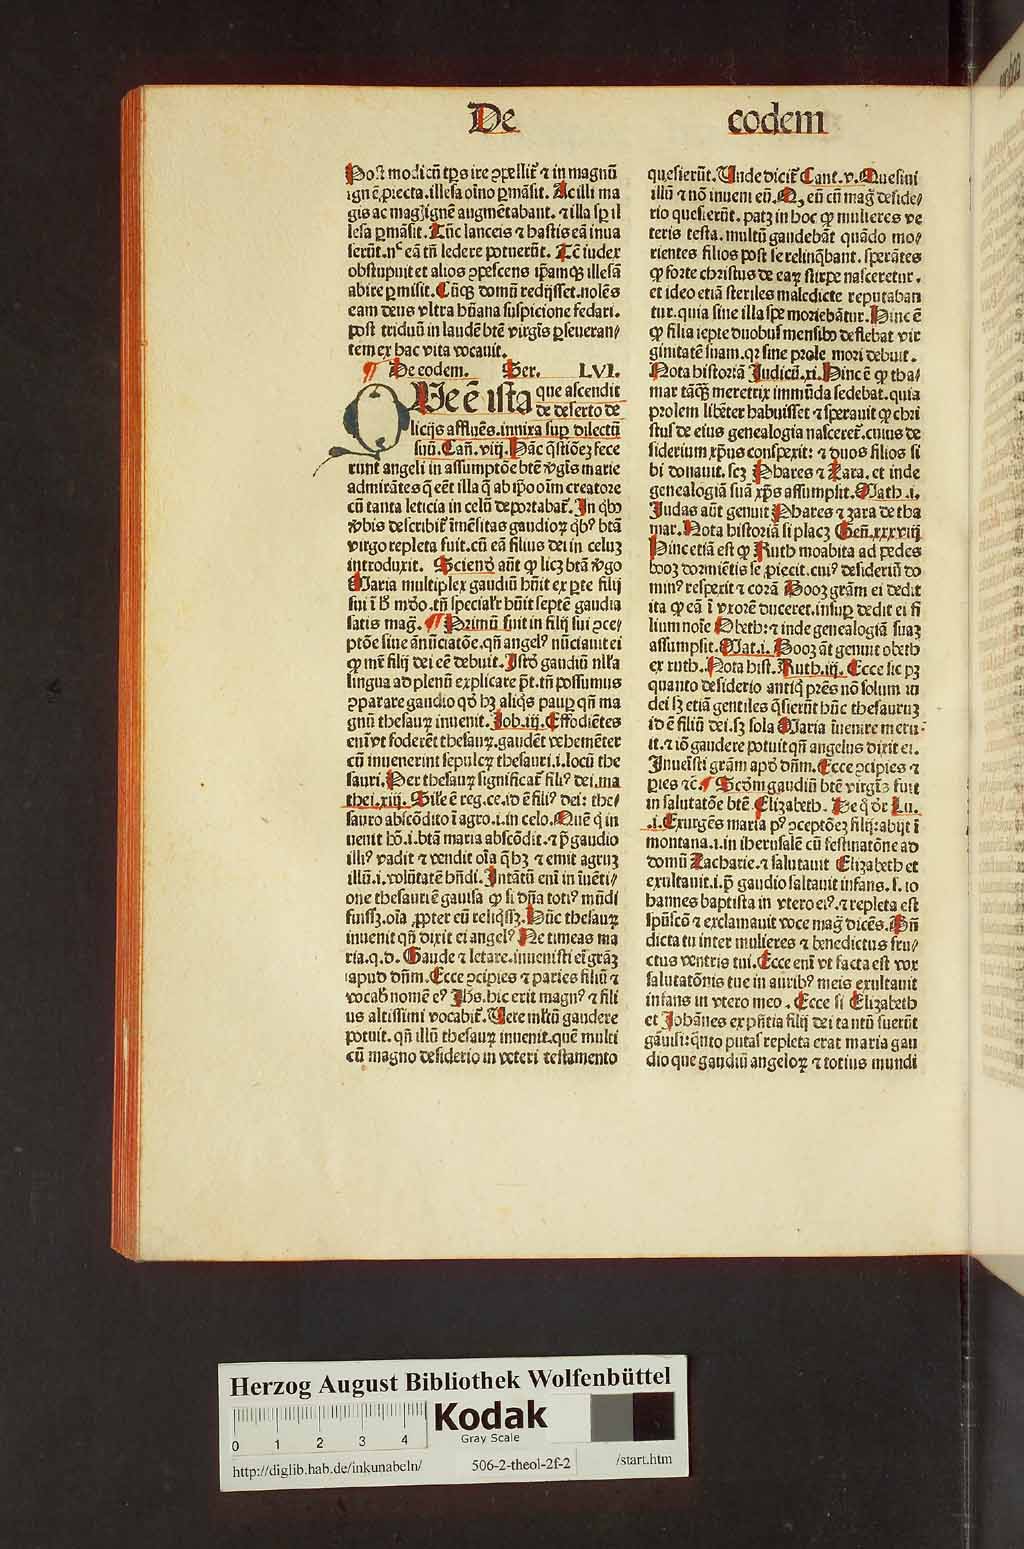 De eodem
Post modicū tp̄s ire ꝯpellit᷑ ⁊ in magnū
ignē ꝓiecta. illesa oīno ꝑmāsit. At illi ma
gis ac mag̃ ignē augmētabant. ⁊ illa sp̄ il
lesa ꝑmāsit. Tūc lanceis ⁊ hastis eā inua
serūt. nᶜ eā tn̄ ledere potuerūt. Tē iudex
obstupuit et alios ꝯpescens ip̄amqꝫ illesā
abire ꝑmisit. Cūqꝫ domū redijsset. nolēs
eam deus vltra hūana suspicione fedari.
post triduū in laudē btē virgīs ꝑseueran⸗
tem ex hac vita vocauit.
¶ De eodem. Ser. LVI.
QUe ē ista que ascendit
de deserto de
licijs affluēs. innixa suꝑ dilectū
suū. Cañ. viij. Hāc q̄stiōeꝫ fece
runt angeli in assumptōe btē v̄gīs marie
admirātes q̄ eēt illa q̄ ab ip̄o oīm creatore
cū tanta leticia in celū deportabat᷑. In qͥbꝫ
v̄bis describit᷑ īmēsitas gaudioꝝ qͥbꝰ btā
virgo repleta fuit. cū eā filius dei in celuꝫ
introduxit. Sciend̄ aūt ꝙ licꝫ btā v̄go
Maria multiplex gaudiū hūit ex ꝑte filij
sui ī h̄ mūdo. tn̄ speciałr hūit septē gaudia
satis mag̃. ¶ Primū fuit in filij sui ꝯce⸗
ptōe siue ānūciatōe. qn̄ angelꝰ nūciauit ei
ꝙ mr̄ filij dei eē debuit. Istd̄ gaudiū nłła
lingua ad plenū explicare pt̄. tn̄ possumus
ꝯparare gaudio qd̄ hꝫ aliqͥs pauꝑ qn̄ ma
gnū thesauꝝ inuenit. Job. iij. Effodiētes
eni vt foderēt thesauꝝ. gaudēt vehemēter
cū inuenerint sepulcꝝ thesauri. i. locū the
sauri. Per thesauꝝ significat᷑ filiꝰ dei. ma
thei. xiij. Sile ē reg. ce. id ē filiꝰ dei: the⸗
sauro abscōdito ī agro. i. in celo. Quē q̄ in
uenit hō. i. btā maria abscōdit. ⁊ p̄ gaudio
illiꝰ vadit ⁊ vendit oīa q̄ hꝫ ⁊ emit agruꝫ
illū. i. volūtatē hn̄di. Intātū eni in īuēti⸗
one thesauri ē gauisa ꝙ si dn̄a totiꝰ mūdi
fuissꝫ. oīa ꝓpter eū reliqͥssꝫ. Hūc thesauꝝ
inuenit qn̄ dixit ei angelꝰ Ne timeas ma
ria. q. d. Gaude ⁊ letare. inuenisti ei gr̄aꝫ
apud dn̄m. Ecce ꝯcipies ⁊ paries filiū ⁊
vocab̄ nomē eꝰ Jhs. hic erit magnꝰ ⁊ fili
us altissimi vocabit᷑. Vere młtū gaudere
potuit. qn̄ illū thesauꝝ inuenit. quē multi
cū magno desiderio in veteri testamento
quesierūt. Unde dicit᷑ Cant. v. Quesiui
illū ⁊ nō inueni eū. Q, eū cū mag̃ deside⸗
rio quesierūt. patꝫ in hoc ꝙ mulieres ve
teris testa. multū gaudebāt quādo mo⸗
rientes filios post se relinq̄bant. sperātes
ꝙ forte christus de eaꝝ stirpe nasceretur.
et ideo etiā steriles maledicte reputaban
tur. quia sine illa spe moriebātur. Hinc ē
ꝙ filia iepte duobus mensibꝰ deflebat vir
ginitatē suam. qꝫ sine prole mori debuit.
Nota historiā Judicū. xi. Hinc ē ꝙ tha⸗
mar tāqꝫ meretrix immūda sedebat. quia
prolem libēter habuisset ⁊ sperauit ꝙ chri
stus de eius genealogia nasceret᷑. cuius de
siderium xp̄us conspexit: ⁊ duos filios si
bi donauit. scꝫ Phares ⁊ Zara. et inde
genealogiā suā xp̄s assumpsit. Math. i.
Judas aūt genuit Phares ⁊ zara de tha
mar. Nota historiā si placꝫ Geñ. xxxviij
Hinc etiā est ꝙ Ruth moabita ad pedes
booz dormiētis se ꝓiecit. cuiꝰ desideriū do
minꝰ respexit ⁊ corā Booz gr̄am ei dedit
ita ꝙ eā ī vxorē duceret. insuꝑ dedit ei fi
lium noīe Obeth: ⁊ inde genealogiā suaꝫ
assumpsit. Mat. i. Booz āt genuit obeth
ex ruth. Nota hist. Ruth. iij. Ecce sic pꝫ
quanto desiderio antiq̄ pr̄es nō solum iu
dei sꝫ etiā gentiles q̄sierūt hūc thesauruꝫ
id ē filiū dei. sꝫ sola Maria īuenire meru⸗
it. ⁊ iō gaudere potuit qn̄ angelus dixit ei.
Inuēisti gr̄am apd̄ dn̄m. Ecce ꝯcipies ⁊
ꝑies ⁊c̄. ¶ Scd̄m gaudiū btē virgīs fuit
in salutatōe btē Elizabeth. De q̄ dr̄ Lu.
.i. Exurgēs maria pꝰ ꝯceptōeꝫ filij: abijt ī
montana. i. in iherusalē cū festinatōne ad
domū Zacharie. ⁊ salutauit Elizabeth et
exultauit. i. p̄ gaudio saltauit infans. s. io
hannes baptista in vtero eiꝰ. ⁊ repleta est
sp̄uscō ⁊ exclamauit voce mag̃ dicēs. Bn̄
dicta tu inter mulieres ⁊ benedictus fru⸗
ctus ventris tui. Ecce eni vt facta est vox
salutatōnis tue in auribꝰ meis exultauit
infans in vtero meo. Ecce si Elizabeth
et Johānes ex pn̄tia filij dei tantū fuerūt
gauisi: q̄nto putas repleta erat maria gau
dio que gaudiū angeloꝝ ⁊ totius mundi
Herzog August Bibliothek Wolfenbüttel
0 1 2 3 4
Kodak
Gray Scale
http://diglib.hab.de/inkunabeln/ 506-2-theol-2f-2 /start.htm